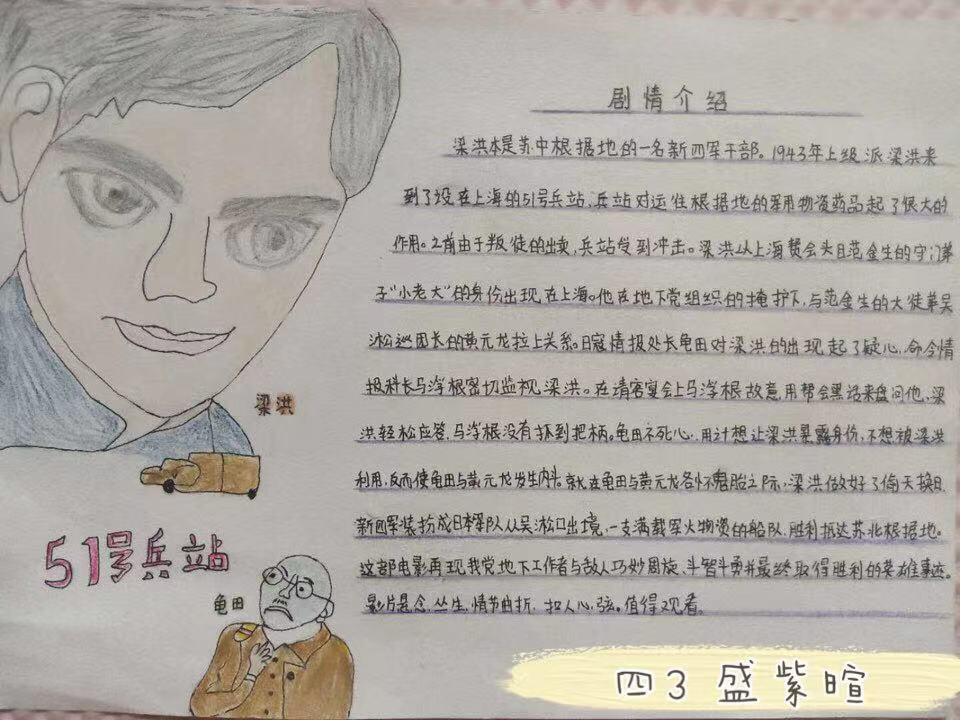 剧情介绍
梁洪本是苏中根据地的一名新四军干部。1943年上级派梁洪来
到了设在上海的51号兵站，兵站对运往根据地的军用物资药品起了很大的
作用。之前由于叛徒的出卖，兵站受到冲击。梁洪以上海帮会头目范金生的守门弟
子"小老大"的身份出现在上海。他在地下党组织的掩护下，与范金生的大徒弟吴
淞巡团长的黄元龙拉上关系。日寇情报处长龟田对梁洪的出现起了疑心，命令情
报科长马浮根密切监视梁洪。在请客宴会上马浮根故意用帮会黑话来盘问他，梁
洪轻松应答，马浮根没有抓到把柄。龟田不死心，用计想让梁洪暴露身份，不想被梁洪
利用，反而使龟田与黄元龙发生内讧。就在龟田与黄元龙各怀鬼胎之际，梁洪做好了偷天换日，
新四军装扮成日本军队从吴淞口出境，一支满载军火物资的船队，胜利抵达苏北根据地。
这部电影再现我党地下工作者与敌人巧妙周旋、斗智斗勇并最终取得胜利的英雄事迹。
影片悬念，丛生，情节曲折，扣人心，弦。值得观看。
梁洪
51号兵站
龟田
四3 盛紫暄